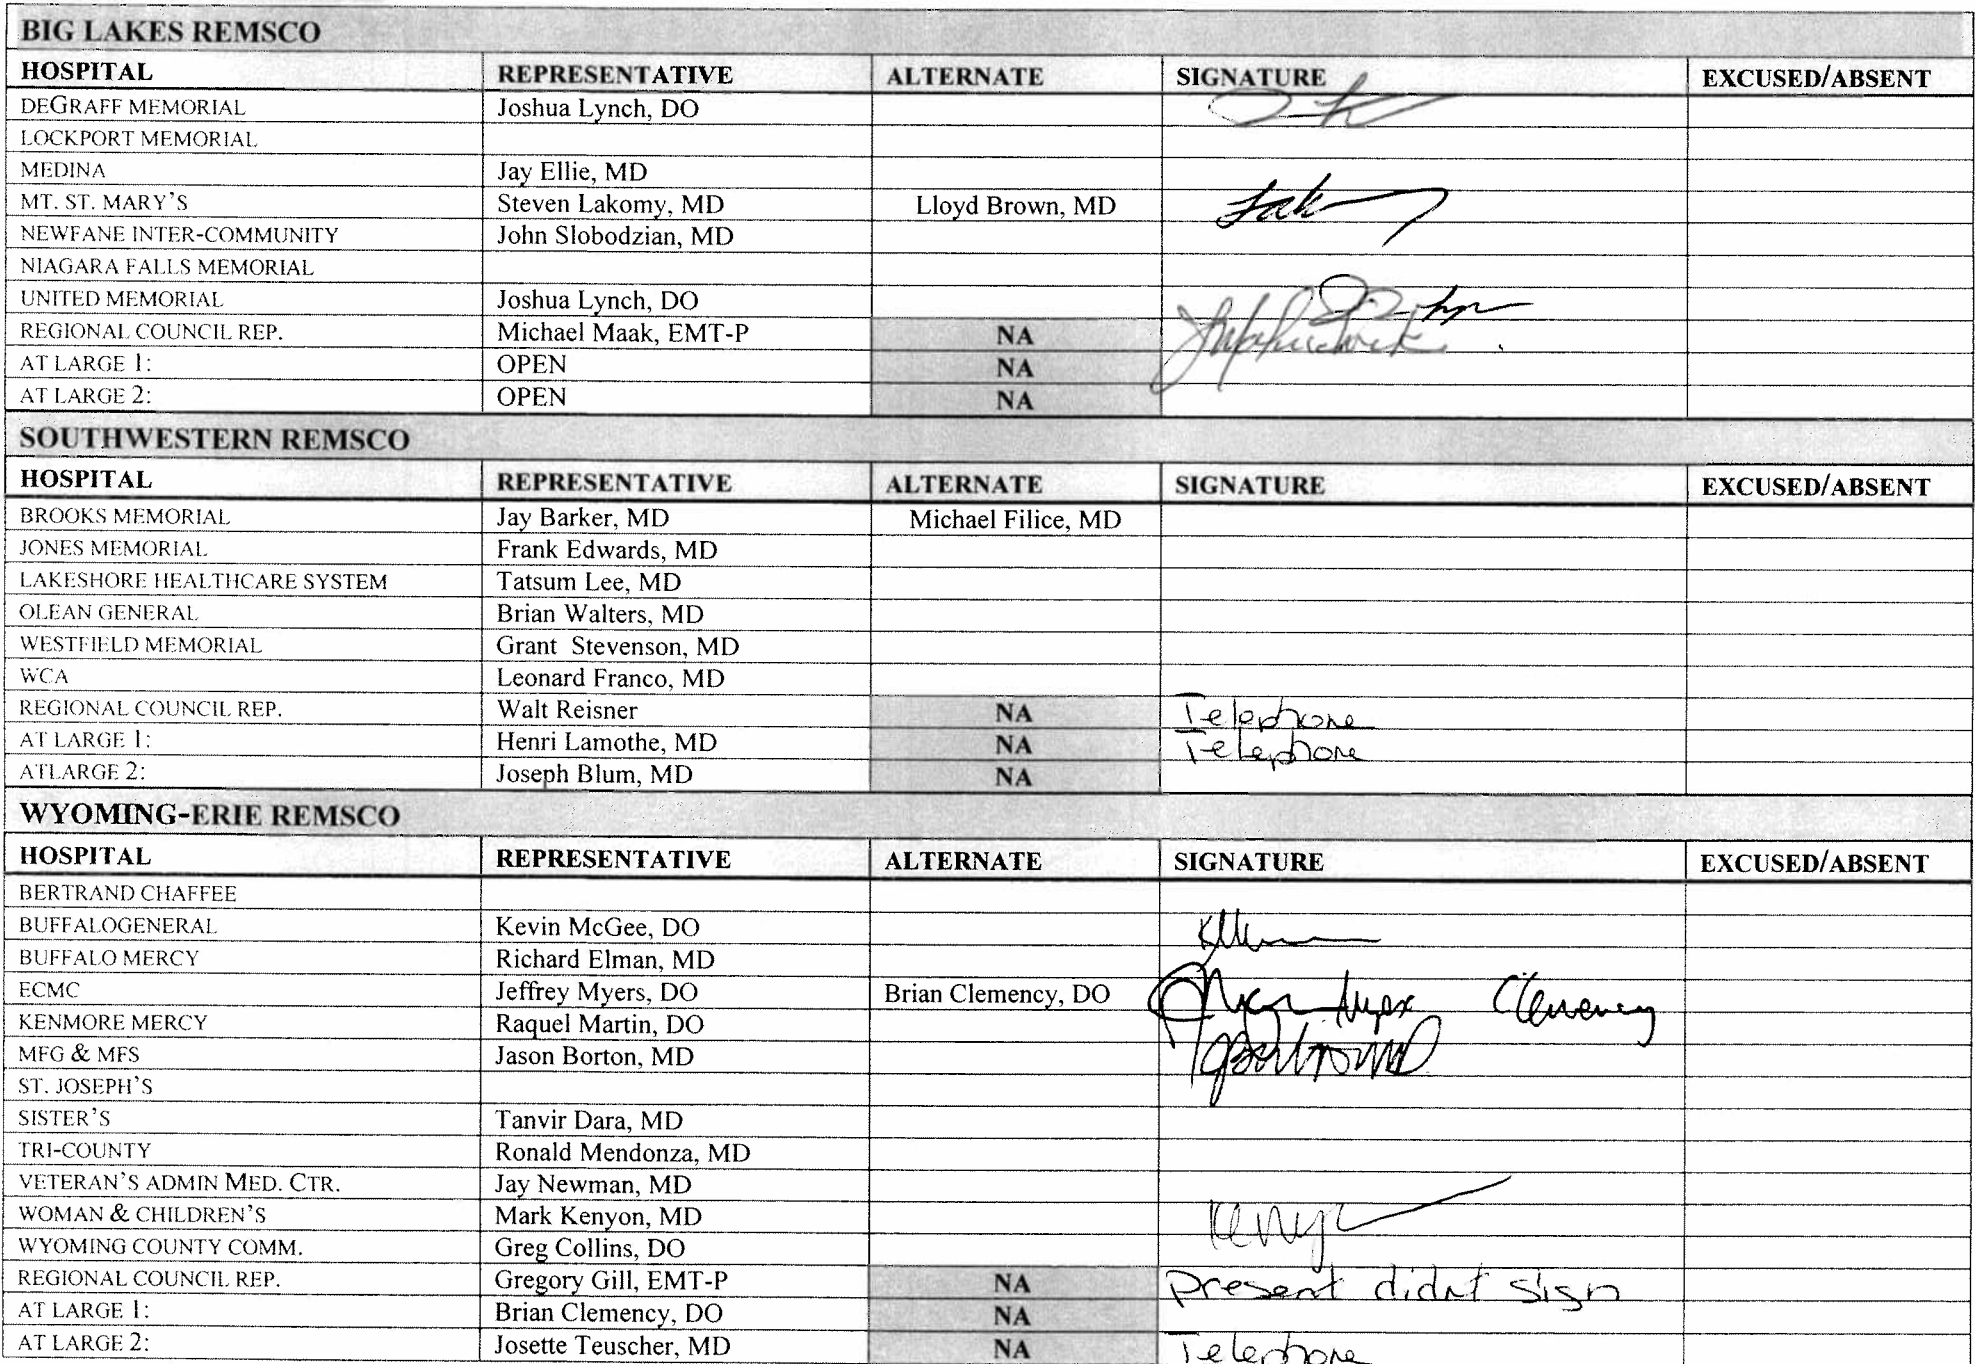 BIG LAKES REMSCO
HOSPITAL REPRESENTATIVE ALTERNATE SIGNATURE EXCUSED/ABSENT
DEGRAFF MEMORIAL Joshua Lynch, DO
LOCKPORT MEMORIAL
MEDINA Jay Ellie, MD
MT. ST. MARY'S Steven Lakomy, MD Lloyd Brown, MD
NEWFANE INTER-COMMUNITY John Slobodzian, MD
NIAGARA FALLS MEMORIAL
UNITED MEMORIAL Joshua Lynch, DO
REGIONAL COUNCIL REP. Michael Maak, EMT-P NA
AT LARGE 1: OPEN NA
AT LARGE 2: OPEN NA
SOUTHWESTERN REMSCO
HOSPITAL REPRESENTATIVE ALTERNATE SIGNATURE EXCUSED/ABSENT
BROOKS MEMORIAL Jay Barker, MD Michael Filice, MD
JONES MEMORIAL Frank Edwards, MD
LAKESHORE HEALTHCARE SYSTEM Tatsum Lee, MD
OLEAN GENERAL Brian Walters, MD
WESTFIELD MEMORIAL Grant Stevenson, MD
WCA Leonard Franco, MD
REGIONAL COUNCIL REP. Walt Reisner NA Telephone
AT LARGE 1: Henri Lamothe, MD NA Telephone
ATLARGE 2: Joseph Blum, MD NA
WYOMING-ERIE REMSCO
HOSPITAL REPRESENTATIVE ALTERNATE SIGNATURE EXCUSED/ABSENT
BERTRAND CHAFFEE
BUFFALOGENERAL Kevin McGee, DO
BUFFALO MERCY Richard Elman, MD
ECMC Jeffrey Myers, DO Brian Clemency, DO Clemency
KENMORE MERCY Raquel Martin, DO
MFG & MFS Jason Borton, MD
ST. JOSEPH'S
SISTER'S Tanvir Dara, MD
TRI-COUNTY Ronald Mendonza, MD
VETERAN'S ADMIN MED. CTR. Jay Newman, MD
WOMAN & CHILDREN'S Mark Kenyon, MD
WYOMING COUNTY COMM. Greg Collins, DO
REGIONAL COUNCIL REP. Gregory Gill, EMT-P NA present didnt sign
AT LARGE 1: Brian Clemency, DO NA
AT LARGE 2: Josette Teuscher, MD NA Telephone